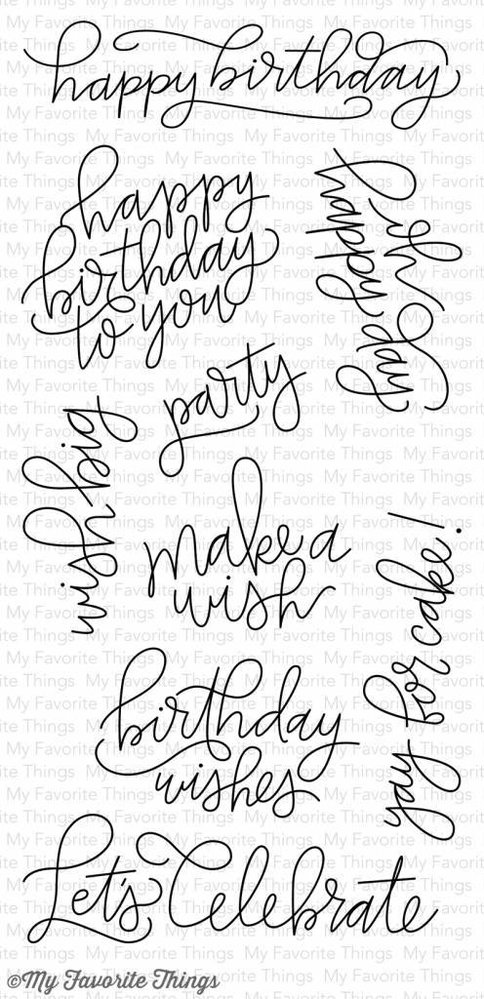 happy birthday
happy
birthday
to you
party
wish big
make a
wish
yay for cake!
birthday
wishes
Let's Celebrate
©My Favorite Things